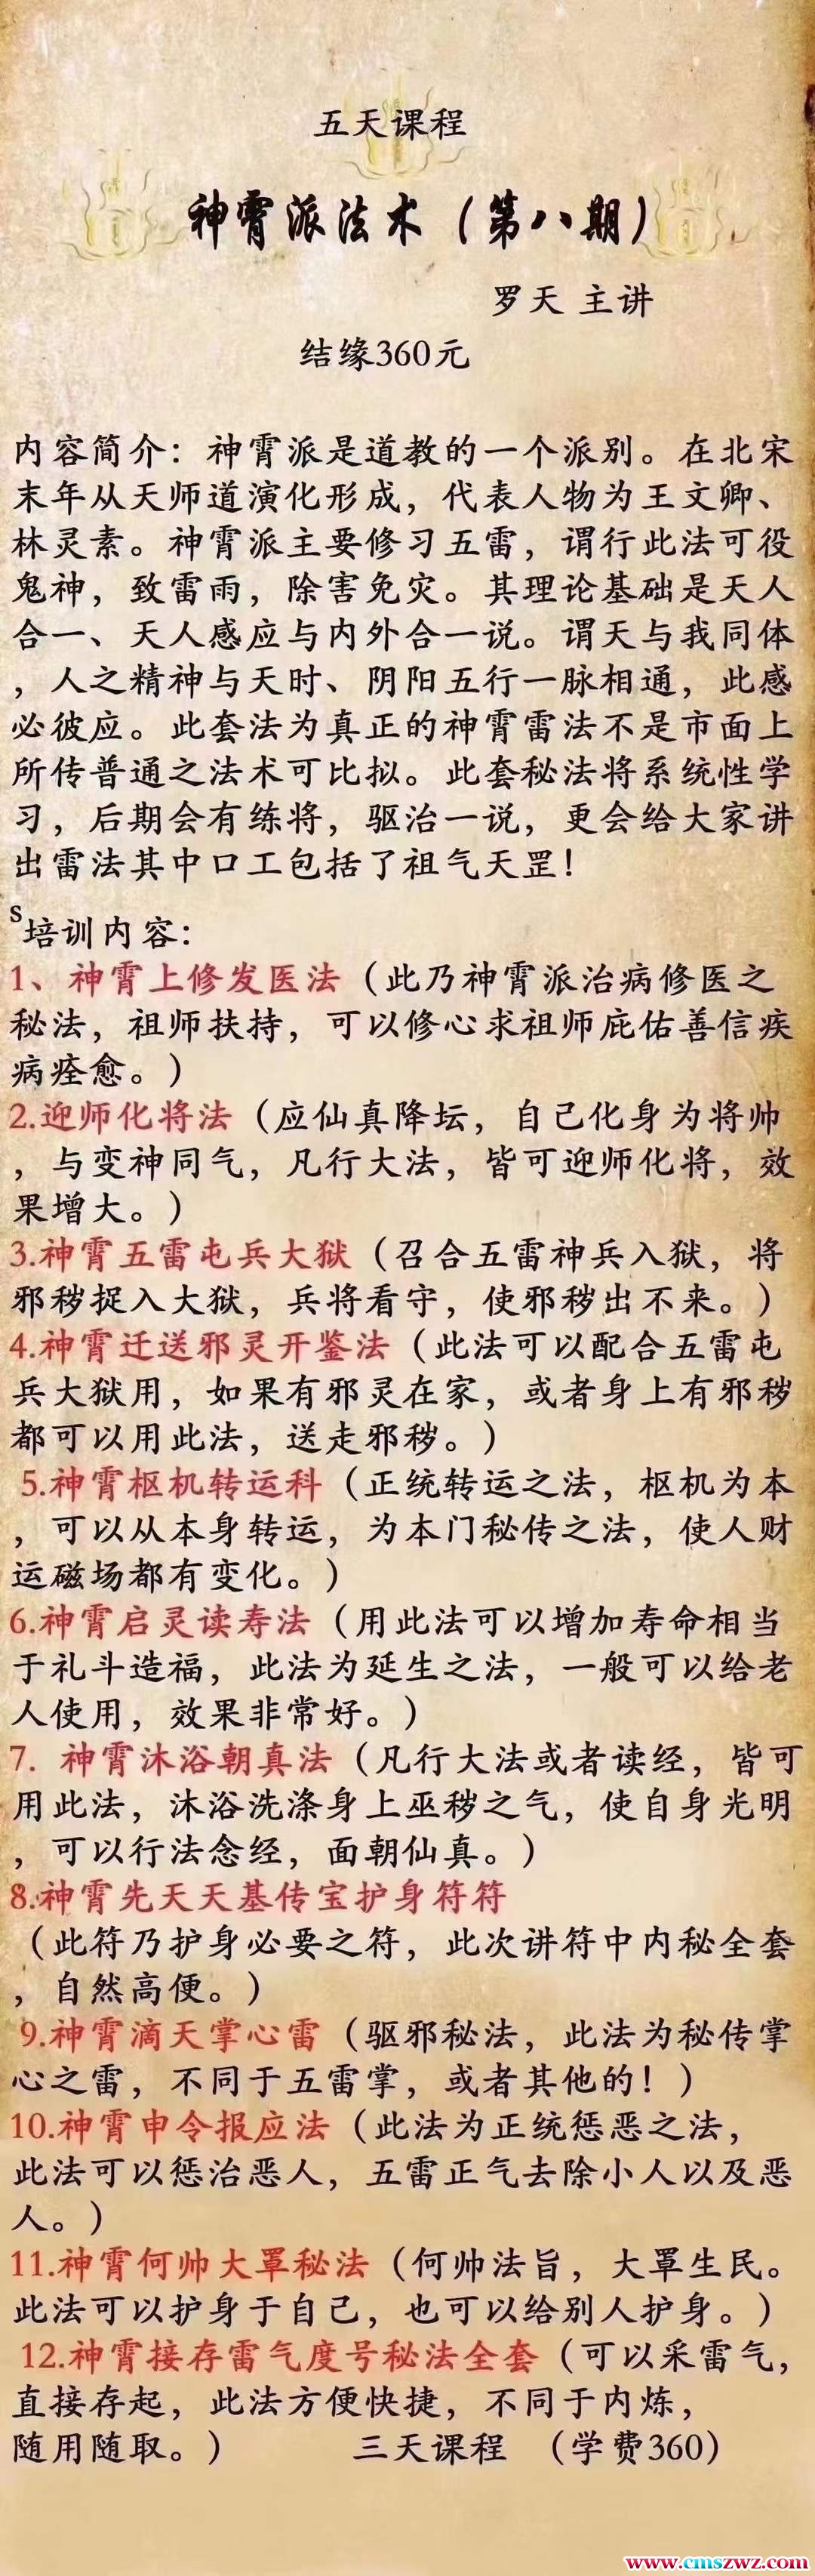 五天课程
神霄派法术（第八期）
罗天 主讲
结缘360元
内容简介：神霄派是道教的一个派别。在北宋
末年从天师道演化形成，代表人物为王文卿、
林灵素。神霄派主要修习五雷，谓行此法可役
鬼神，致雷雨，除害免灾。其理论基础是天人
合一、天人感应与内外合一说。谓天与我同体
，人之精神与天时、阴阳五行一脉相通，此感
必彼应。此套法为真正的神霄雷法不是市面上
所传普通之法术可比拟。此套秘法将系统性学
习，后期会有练将，驱治一说，更会给大家讲
出雷法其中口工包括了祖气天罡！
s培训内容：
1、神霄上修发医法（此乃神霄派治病修医之
秘法，祖师扶持，可以修心求祖师庇佑善信疾
病痊愈。）
2.迎师化将法（应仙真降坛，自己化身为将帅
，与变神同气，凡行大法，皆可迎师化将，效
果增大。）
3.神霄五雷屯兵大狱（召合五雷神兵入狱，将
邪秽捉入大狱，兵将看守，使邪秽出不来。）
4.神霄迁送邪灵开鉴法（此法可以配合五雷屯
兵大狱用，如果有邪灵在家，或者身上有邪秽
都可以用此法，送走邪秽。）
5.神霄枢机转运科（正统转运之法，枢机为本
，可以从本身转运，为本门秘传之法，使人财
运磁场都有变化。）
6.神霄启灵读寿法（用此法可以增加寿命相当
于礼斗造福，此法为延生之法，一般可以给老
人使用，效果非常好。）
7. 神霄沐浴朝真法（凡行大法或者读经，皆可
用此法，沐浴洗涤身上巫秽之气，使自身光明
，可以行法念经，面朝仙真。）
8.神霄先天天基传宝护身符符
（此符乃护身必要之符，此次讲符中内秘全套
，自然高便。）
9.神霄滴天掌心雷（驱邪秘法，此法为秘传掌
心之雷，不同于五雷掌，或者其他的！）
10.神霄申令报应法（此法为正统惩恶之法，
此法可以惩治恶人，五雷正气去除小人以及恶
人。）
11.神霄何帅大罩秘法（何帅法旨，大罩生民。
此法可以护身于自己，也可以给别人护身。）
12.神霄接存雷气度号秘法全套（可以采雷气，
直接存起，此法方便快捷，不同于内炼，
随用随取。） 三天课程 （学费360）
www.cmszwz.com